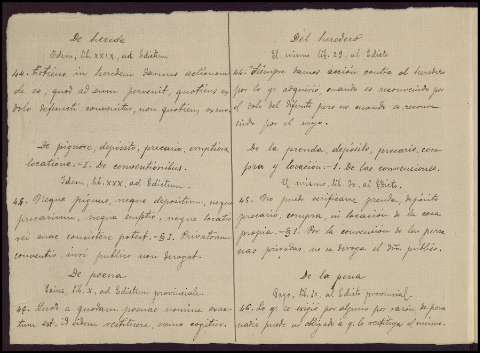 De herede
Idem, lib. XXIX, ad Edictum
44.- Totiens in heredem damus actionem
de eo, quod ad eum pervenit, quotiens ex
dolo defuncti convenitur, non quotiens ex suo
De pignore, deposito, precario, emptione,
locatione.-§. De conventionibus.
Idem, lib. XXX, ad Edictum.
45.- Neque pignus, neque depositum, neque
precarium, neque emptio, neque locatio
rei suae consistere potest.-§1. Privatorum
conventio iuri publico non derogat.
De poena
Gaius, lib. X, ad Edictum provinciale
46.- Quod a quodam poenae nomine exac-
tum est, id idem restituere, nemo cogitur.
Del heredero
El mismo lib. 29, al Edicto
44.- Siempre damos acción contra el heredero
por lo q. adquirió, cuando es reconvenido por
el dolo del difunto pero no cuando es recon-
venido por el suyo.
De la prenda, depósito, precario, com-
pra y locación.-§. De las convenciones.
El mismo lib. 30, al Edicto.
45.- No puede verificarse prenda, depósito
precario, compra, ni locación de la cosa
propia.-§1. Por la convención de las perso-
nas privadas, no se deroga el dro público.
De la pena
Gayo, lib. 10, al Edicto provincial.
46.- Lo q. se exigió por alguno por razón de pena
nadie puede ser obligado a q. lo restituya al mismo.